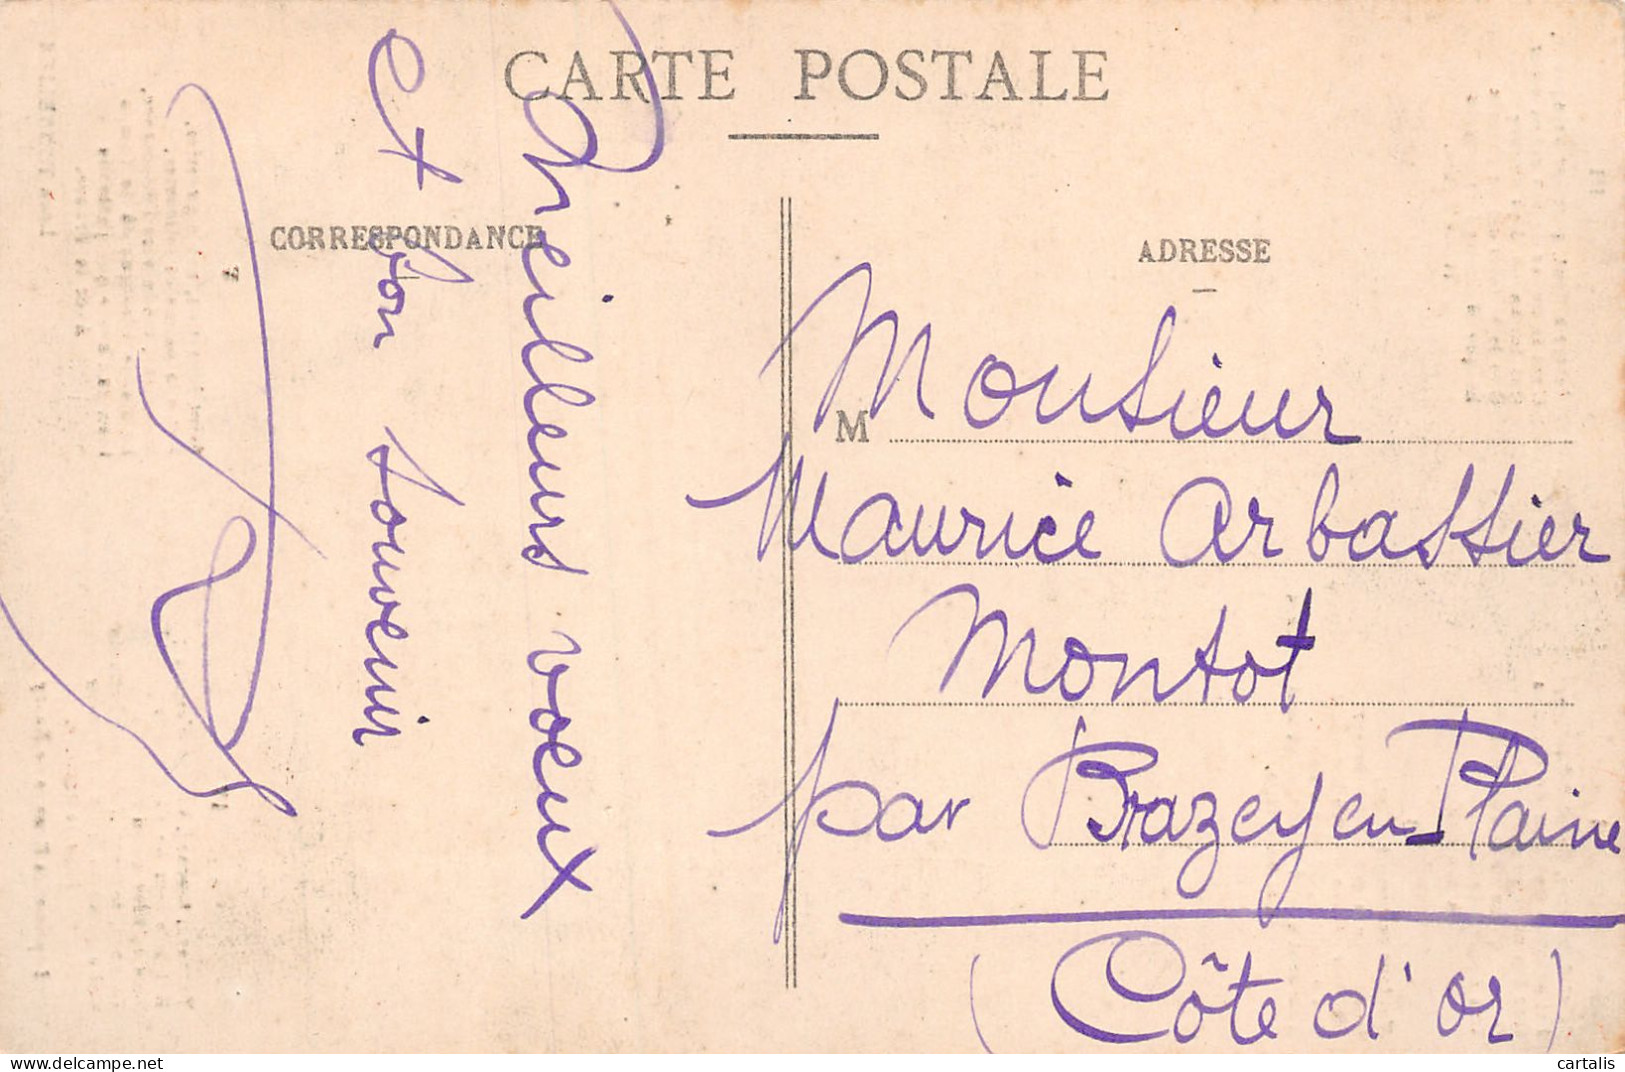 CARTE POSTALE
CORRESPONDANCE
Meilleurs voeux
et bon souvenir
ADRESSE
M Monsieur
Maurice Arbassier
Montot
par Brazey en Plaine
(Côte d'or)
cartalis